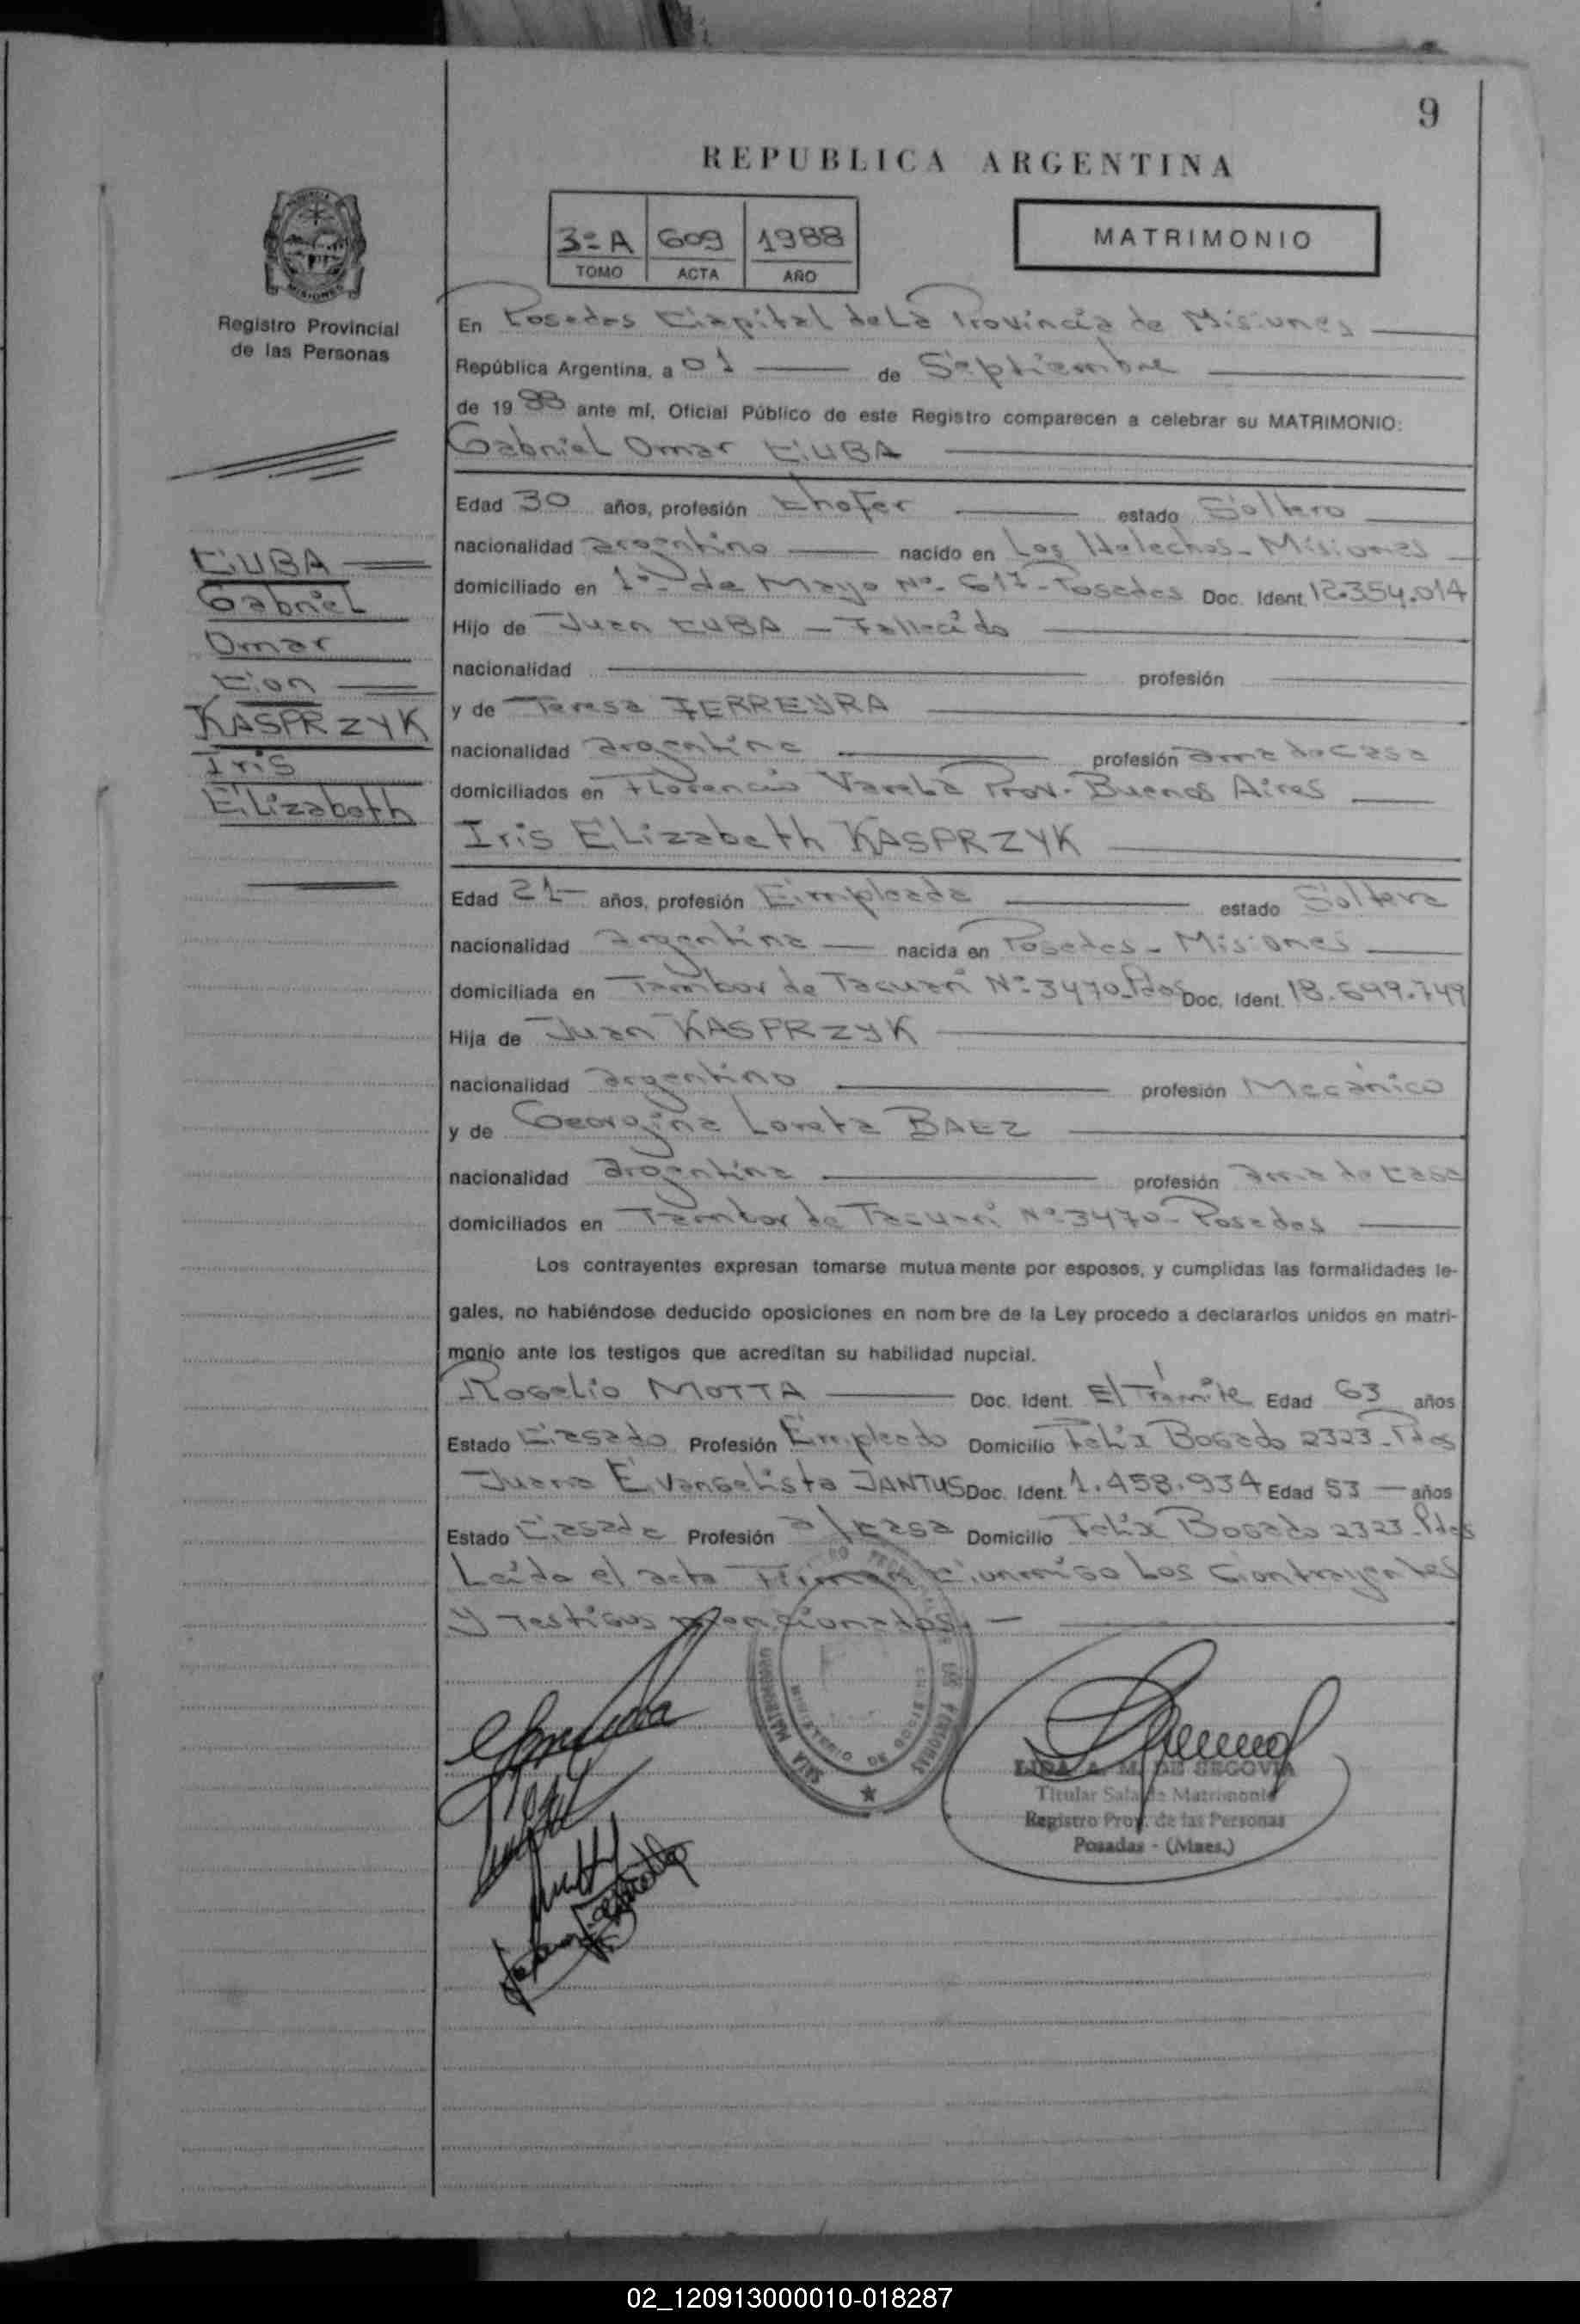 9
REPUBLICA ARGENTINA
3º A 609 1988
TOMO ACTA AÑO
MATRIMONIO
Registro Provincial
de las Personas
CUBA
Gabriel
Omar
Con
KASPRZYK
Iris
Elizabeth
En Posadas Capital de La Provincia de Misiones
República Argentina, a 01 de Septiembre
de 1988 ante mí, Oficial Público de este Registro comparecen a celebrar su MATRIMONIO:
Gabriel Omar CUBA
Edad 30 años, profesión Chofer estado Soltero
nacionalidad argentino nacido en Los Helechos - Misiones
domiciliado en 1º de Mayo Nº 617 - Posadas Doc. Ident. 12.354.014
Hijo de Juan CUBA - Fallecido
nacionalidad profesión
y de Teresa FERREYRA
nacionalidad argentina profesión ama de casa
domiciliados en Florencio Varela Prov. Buenos Aires
Iris Elizabeth KASPRZYK
Edad 21 años, profesión Empleada estado Soltera
nacionalidad argentina nacida en Posadas - Misiones
domiciliada en Tambor de Tacuarí Nº 3470 - Pdas Doc. Ident. 18.699.749
Hija de Juan KASPRZYK
nacionalidad argentino profesión Mecánico
y de Georgina Loreta BAEZ
nacionalidad argentina profesión ama de Casa
domiciliados en Tambor de Tacuarí Nº 3470 - Posadas
Los contrayentes expresan tomarse mutuamente por esposos, y cumplidas las formalidades le-
gales, no habiéndose deducido oposiciones en nombre de la Ley procedo a declararlos unidos en matri-
monio ante los testigos que acreditan su habilidad nupcial.
Rogelio MOTTA Doc. Ident. El Trámite Edad 63 años
Estado Casado Profesión Empleado Domicilio Felix Bogado 2323 - Pdas
Juana Evangelista JANTUS Doc. Ident. 1.458.934 Edad 53 años
Estado Casada Profesión a/casa Domicilio Felix Bogado 2323 - Pdas
Leida el acta Firman Conmigo Los Contrayentes
y Testigos mencionados. -
SALA MATRIMONIO
MINISTERIO DE GOBIERNO
LIDA A. M. DE SEGOVIA
Titular Sala de Matrimonio
Registro Prov. de las Personas
Posadas - (Mnes.)
02_120913000010-018287